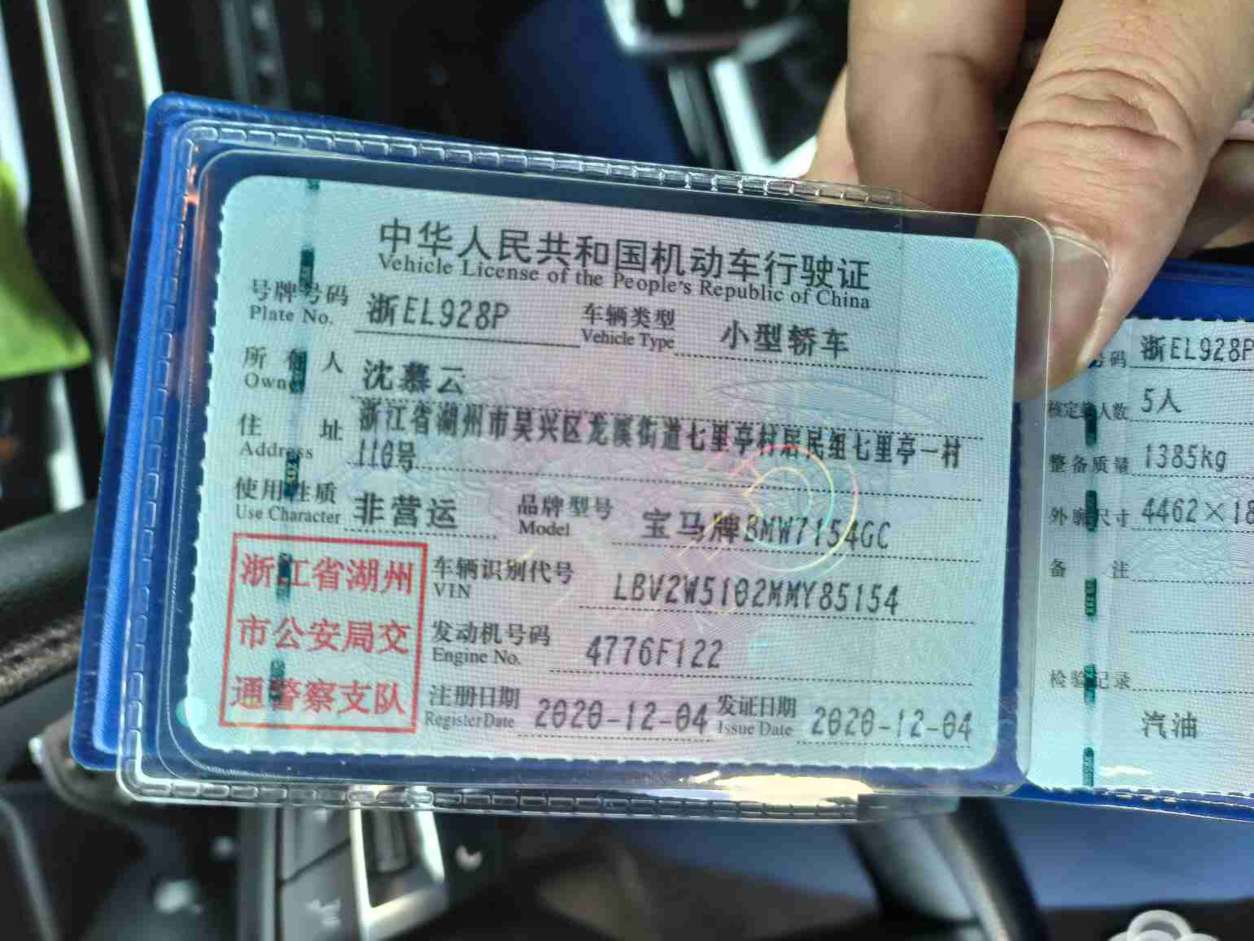 中华人民共和国机动车行驶证
Vehicle License of the People's Republic of China
号牌号码 浙EL928P 车辆类型 小型轿车
Plate No. Vehicle Type
所有人 沈慕云
Owner
住址 浙江省湖州市吴兴区龙溪街道七里亭村居民组七里亭一村
Address 110号
使用性质 非营运 品牌型号 宝马牌BMW7154GC
Use Character Model
浙江省湖州
市公安局交
通警察支队
车辆识别代号 LBV2W5102MMY85154
VIN
发动机号码 4776F122
Engine No.
注册日期 2020-12-04 发证日期 2020-12-04
Register Date Issue Date
号码 浙EL928P
核定载人数 5人
整备质量 1385kg
外廓尺寸 4462×18
备注
检验记录
汽油